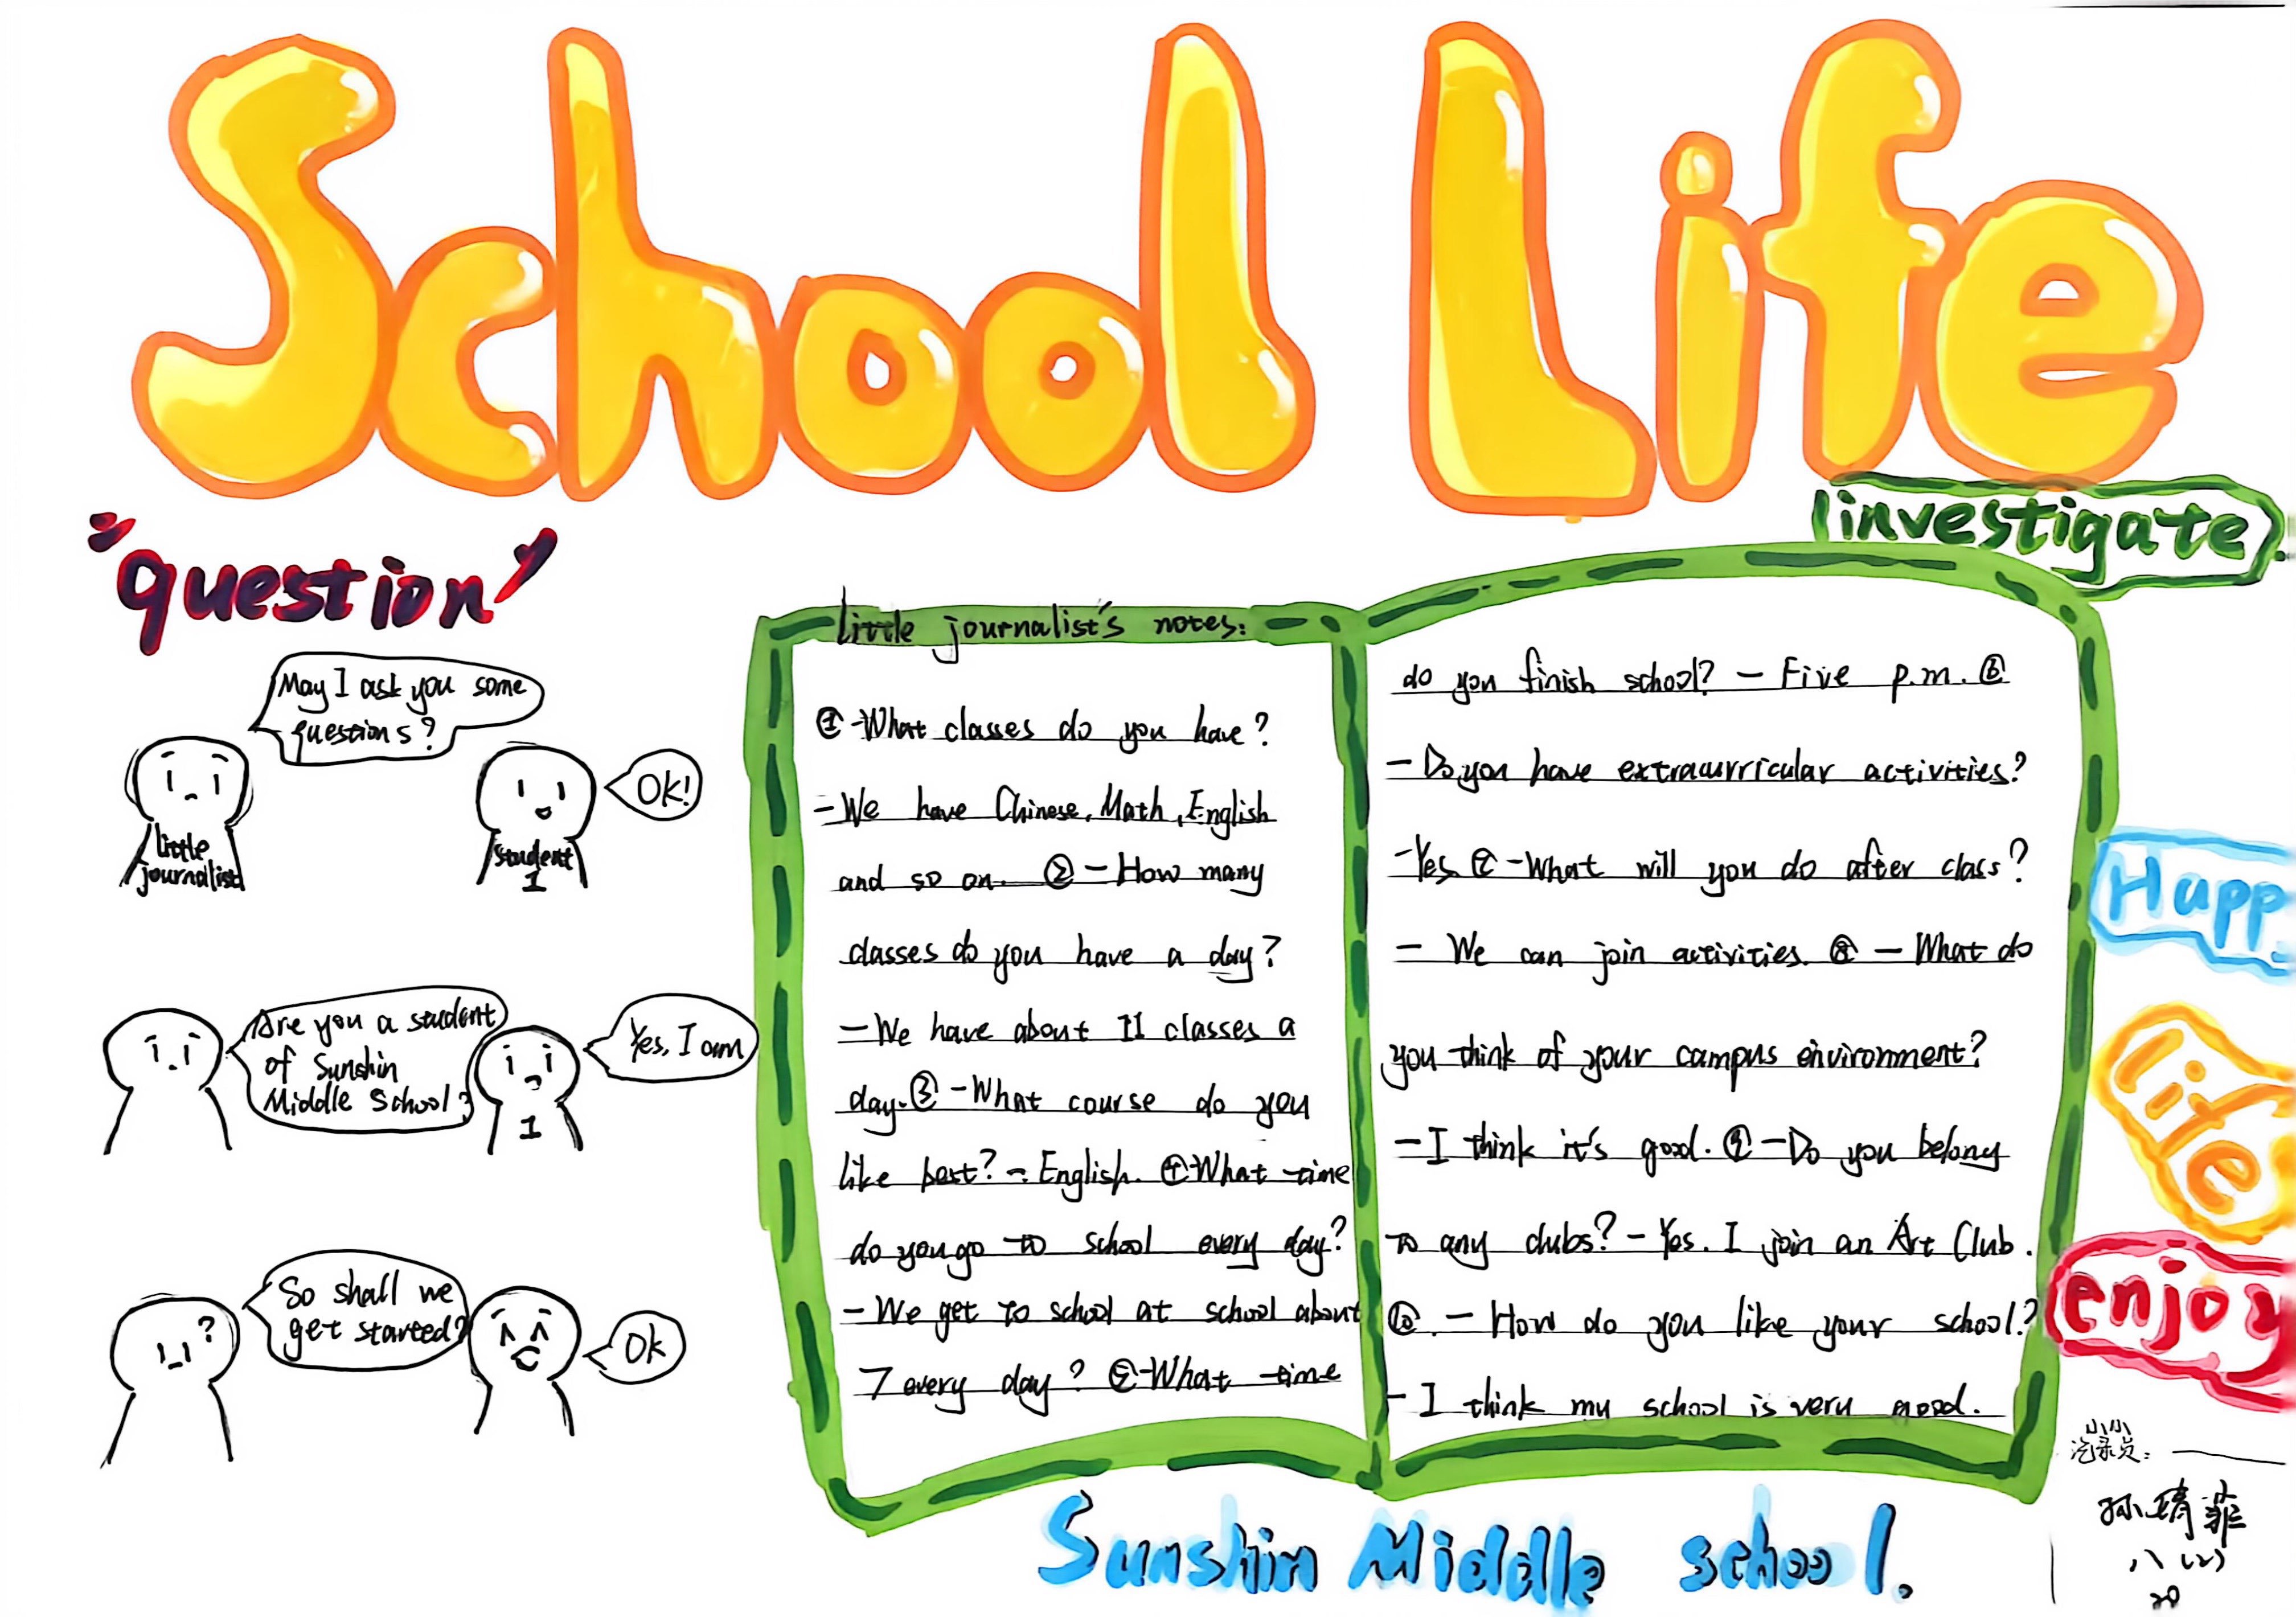 School Life
investigate
"question"
May I ask you some
questions?
OK!
little
journalist
student
1
Are you a student
of Sunshin
Middle School?
Yes, I am
1
So shall we
get started?
?
Ok
little journalist's notes:
① -What classes do you have?
-We have Chinese, Math, English
and so on. ② -How many
classes do you have a day?
-We have about 11 classes a
day. ③ -What course do you
like best? - English. ④ -What time
do you go to school every day?
- We get to school at school about
7 every day? ⑤ -What time
do you finish school? - Five p.m. ⑥
- Do you have extracurricular activities?
-Yes. ⑦ -What will you do after class?
- We can join activities. ⑧ - What do
you think of your campus environment?
- I think it's good. ⑨ - Do you belong
to any clubs? - Yes. I join an Art Club.
⑩. - How do you like your school?
- I think my school is very good.
Happ
Life
enjoy
Sunshin Middle school.
小小
记录员:
孙靖菲
八(2)
20